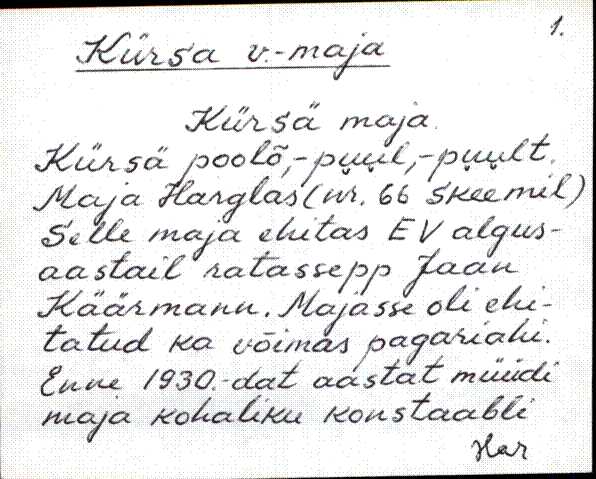 1.
Kürsa v.-maja
Kürsä maja.
Kürsä poolõ,-puul,-puult.
Maja Harglas (nr. 66 skeemil)
Selle maja ehitas EV algus-
aastail ratassepp Jaan
Käärmann. Majasse oli ehi-
tatud ka võimas pagariahi.
Enne 1930.-dat aastat müüdi
maja kohaliku konstaabli
Har